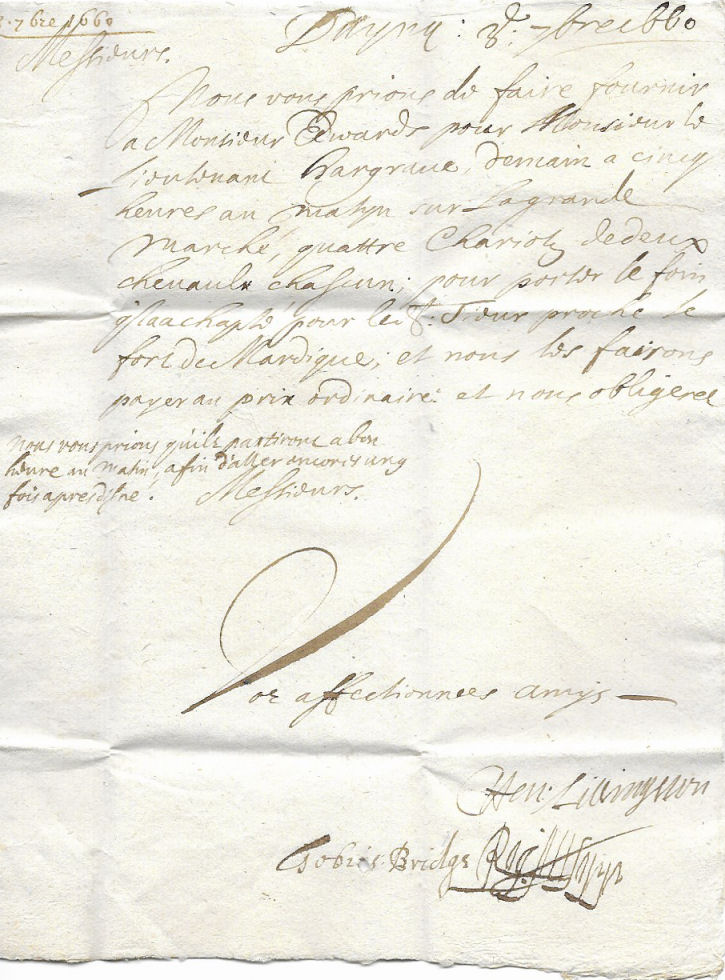 8. 7bre 1660
8: 7bre 1660
Messieurs.
Nous vous prions de faire fournir
a Monsieur Edwards pour Monsieur le
Lieutenant Hargraue, demain a cincq
heures au matyn sur La grande
Marché, quattre Chariotz de deux
cheuaulx chascun; pour porter le foin
achapté pour led.t Sieur proche le
fort de Mardique; et nous les fairons
payer au prix ordinaire: et nous obligerez
nous vous prions qu'ilz partiront a bon
heure au matin, afin d'aller encoris ung
fois apres disne.
Messieurs.
Voz affectionnees amys
Hen: Lillingston
Tobias Bridge